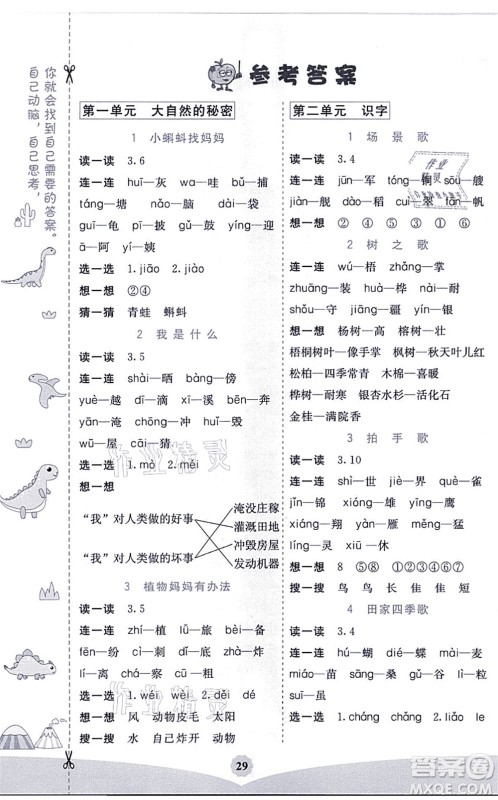 参考答案
你就会找到自己需要的答案。
自己动脑,自己思考,
第一单元 大自然的秘密
1 小蝌蚪找妈妈
读一读 3.6
连一连 huī—灰 wa—哇 bǔ—捕
táng—塘 nǎo—脑 dài—袋
guī—龟 pī—披 gǔ—鼓
ā—阿 yí—姨
选一选 1.jiāo 2.jiào
想一想 ②④
猜一猜 青蛙 蝌蚪
2 我是什么
读一读 3.5
连一连 shài—晒 bàng—傍
yuè—越 dī—滴 xī—溪 bēn—奔
yáng—洋 chōng—冲 huǐ—毁
wū—屋 cāi—猜
选一选 1.mò 2.méi
想一想
“我”对人类做的好事
“我”对人类做的坏事
淹没庄稼
灌溉田地
冲毁房屋
发动机器
3 植物妈妈有办法
读一读 3.5
连一连 zhí—植 lǚ—旅 bèi—备
fēn—纷 cì—刺 dǐ—底 zhà—炸
lí—离 chá—察 cū—粗
选一选 1.wéi wèi 2.děi dé
想一想 风 动物皮毛 太阳
搜一搜 水 自己炸开 动物
第二单元 识字
1 场景歌
读一读 3.4
连一连 jūn—军 tóng—铜 sōu—艘
jiàn—舰 dào—稻 cuì—翠 fān—帆
想一想 ② ④ ① ③ ⑤ ⑥
2 树之歌
连一连 wú—梧 zhǎng—掌
zhuāng—装 huà—桦 nài—耐
shǒu—守 jiāng—疆 yín—银
想一想 杨树—高 榕树—壮
梧桐树叶—像手掌 枫树—秋天叶儿红
松柏—四季常青 木棉—喜暖
桦树—耐寒 银杏水杉—活化石
金桂—满院香
3 拍手歌
读一读 3.10
连一连 shì—世 jiè—界 yīng—鹰
jǐn—锦 yàn—雁 cóng—丛
xiáng—翔 xióng—雄 měng—猛
líng—灵 xián—闲
想一想 8 ⑤⑧ ①②③④⑥⑦
搜一搜 鸟 鸟 长 隹 隹 短
4 田家四季歌
读一读 3.4
连一连 hú—蝴 dié—蝶 mài—麦
miáo—苗 sāng—桑 féi—肥 lì—粒
suī—虽
选一选 1.cháng chǎng 2.liǎo le
29
作业精灵
作业精灵
作业精灵
答案圈
MXQE.COM